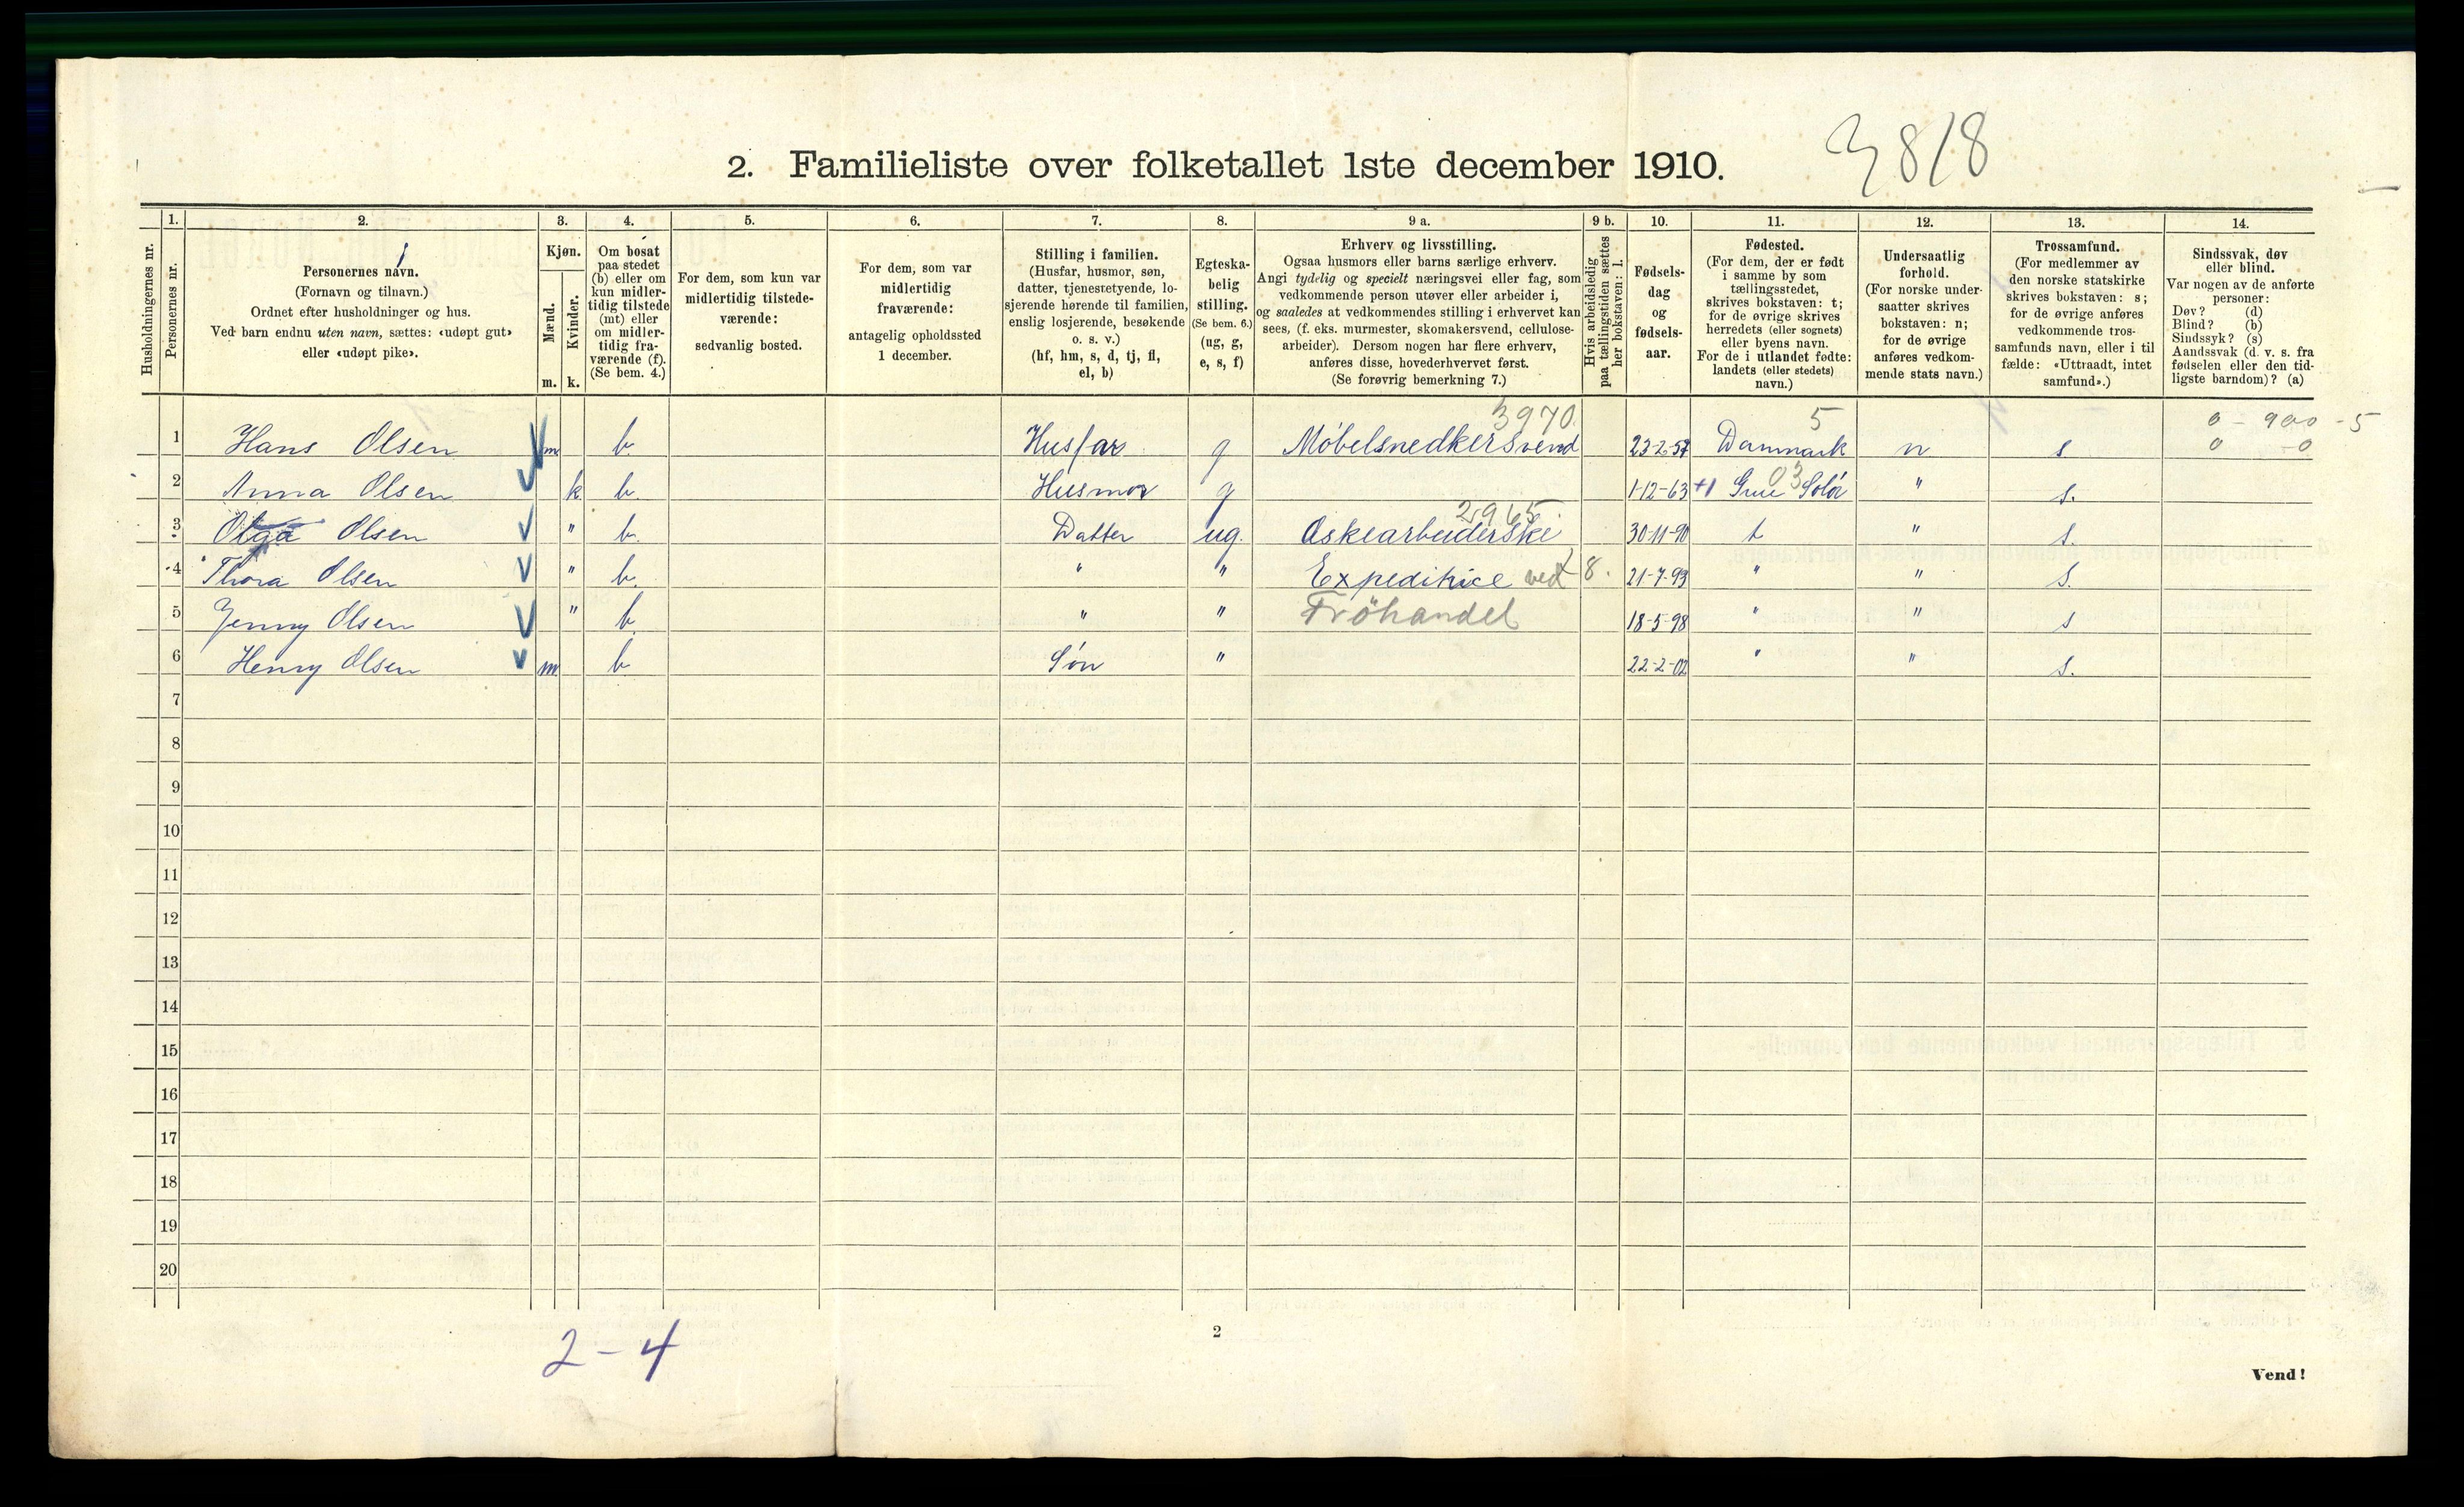 2. Familieliste over folketallet 1ste december 1910.
3818
Husholdningernes nr.
1.
Personernes nr.
2.
Personernes navn.
(Fornavn og tilnavn.)
Ordnet efter husholdninger og hus.
Ved barn endnu uten navn, sættes: «udøpt gut»
eller «udøpt pike».
3.
Kjøn.
Mænd.
Kvinder.
m. k.
4.
Om bosat
paa stedet
(b) eller om
kun midler-
tidig tilstede
(mt) eller
om midler-
tidig fra-
værende (f).
(Se bem. 4.)
5.
For dem, som kun var
midlertidig tilstede-
værende:
sedvanlig bosted.
6.
For dem, som var
midlertidig
fraværende:
antagelig opholdssted
1 december.
7.
Stilling i familien.
(Husfar, husmor, søn,
datter, tjenestetyende, lo-
sjerende hørende til familien,
enslig losjerende, besøkende
o. s. v.)
(hf, hm, s, d, tj, fl,
el, b)
8.
Egteska-
belig
stilling.
(Se bem. 6.)
(ug, g,
e, s, f)
9 a.
Erhverv og livsstilling.
Ogsaa husmors eller barns særlige erhverv.
Angi tydelig og specielt næringsvei eller fag, som
vedkommende person utøver eller arbeider i,
og saaledes at vedkommendes stilling i erhvervet kan
sees, (f. eks. murmester, skomakersvend, cellulose-
arbeider). Dersom nogen har flere erhverv,
anføres disse, hovederhvervet først.
(Se forøvrig bemerkning 7.)
9 b.
Hvis arbeidsledig
paa tællingstiden sættes
her bokstaven: l.
10.
Fødsels-
dag
og
fødsels-
aar.
11.
Fødested.
(For dem, der er født
i samme by som
tællingsstedet,
skrives bokstaven: t;
for de øvrige skrives
herredets (eller sognets)
eller byens navn.
For de i utlandet fødte:
landets (eller stedets)
navn.)
12.
Undersaatlig
forhold.
(For norske under-
saatter skrives
bokstaven: n;
for de øvrige
anføres vedkom-
mende stats navn.)
13.
Trossamfund.
(For medlemmer av
den norske statskirke
skrives bokstaven: s;
for de øvrige anføres
vedkommende tros-
samfunds navn, eller i til
fælde: «Uttraadt, intet
samfund».)
14.
Sindssvak, døv
eller blind.
Var nogen av de anførte
personer:
Døv? (d)
Blind? (b)
Sindssyk? (s)
Aandssvak (d. v. s. fra
fødselen eller den tid-
ligste barndom)? (a)
3970 5 0 - 900 - 5
1 Hans Olsen m b. Husfar g Møbelsnedkersvend 23-2-57 Danmark n s 0 - 0
03
2 Anna Olsen k b. Husmor g 1-12-63 +1 Grue Solør " s.
2965
3 Olga Olsen " b. Datter ug. Æskearbeiderske 30-11-90 t " s.
4 Thora Olsen " b. " " Expeditrice ved 8. 21-7-93 " " s.
5 Jenny Olsen " b. " " Fröhandel 18-5-98 " " s
6 Henry Olsen m b Søn " 22-2-02 " " s.
7
8
9
10
11
12
13
14
15
16
17
18
19
20
2-4
2
Vend!